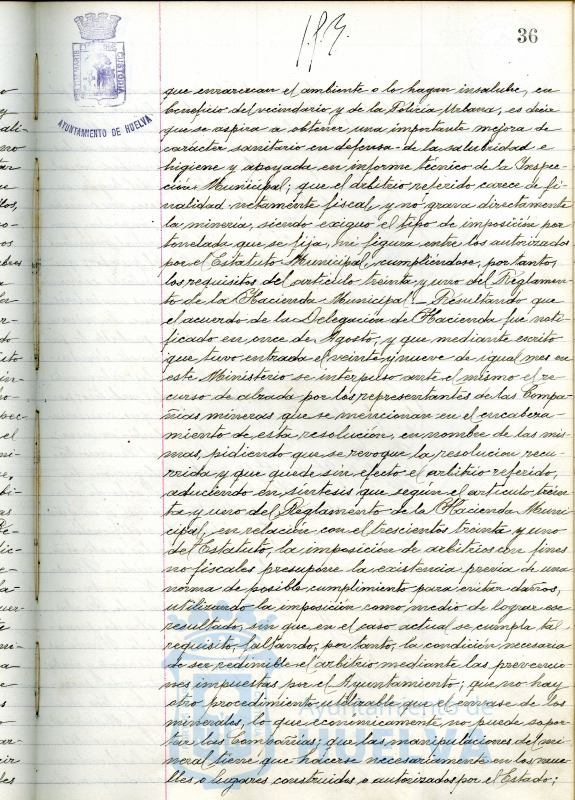 36
AYUNTAMIENTO DE HUELVA
que enrarezcan el ambiente o lo hagan insalubre, en
beneficio del vecindario y de la Policia Urbana, es decir
que se aspira a obtener una importante mejora de
carácter sanitario en defensa de la salubridad e
higiene y apoyada en informe técnico de la Inspec-
ción Municipal; que el arbitrio referido carece de fi-
nalidad netamente fiscal, y no grava directamente
la mineria, siendo exiguo el tipo de imposición por
tonelada que se fija, ni figura entre los autorizados
por el Estatuto Municipal, cumpliéndose, por tanto,
los requisitos del articulo treinta y uno del Reglamen-
to de la Hacienda Municipal.- Resultando que
el acuerdo de la Delegación de Hacienda fue noti-
ficado en once de Agosto, y que mediante escrito
que tuvo entrada el veinte y nueve de igual mes en
este Ministerio se interpuso ante el mismo el re-
curso de alzada por los representantes de las Compa-
ñias mineras que se mencionan en el encabeza-
miento de esta resolución, en nombre de las mis-
mas, pidiendo que se revoque la resolucion recu-
rrida y que quede sin efecto el arbitrio referido,
aduciendo en sintesis que según el articulo trein-
ta y uno del Reglamento de la Hacienda Muni-
cipal, en relación con el trescientos treinta y uno
del Estatuto, la imposición de arbitrios con fines
no fiscales presupone la existencia previa de una
norma de posible cumplimiento para evitar daños,
utilizando la imposición como medio de lograr ese
resultado, sin que en el caso actual se cumpla tal
requisito, faltando, por tanto, la condición necesaria
de ser redimible el arbitrio mediante las prevencio-
nes impuestas por el Ayuntamiento; que no hay
otro procedimiento utilizable que el envase de los
minerales, lo que económicamente no puede sopor-
tar las Compañias; que las manipulaciones del mi-
neral tiene que hacerse necesariamente en los mue-
lles o lugares construidos o autorizados por el Estado;
Ayuntamiento de
HUELVA